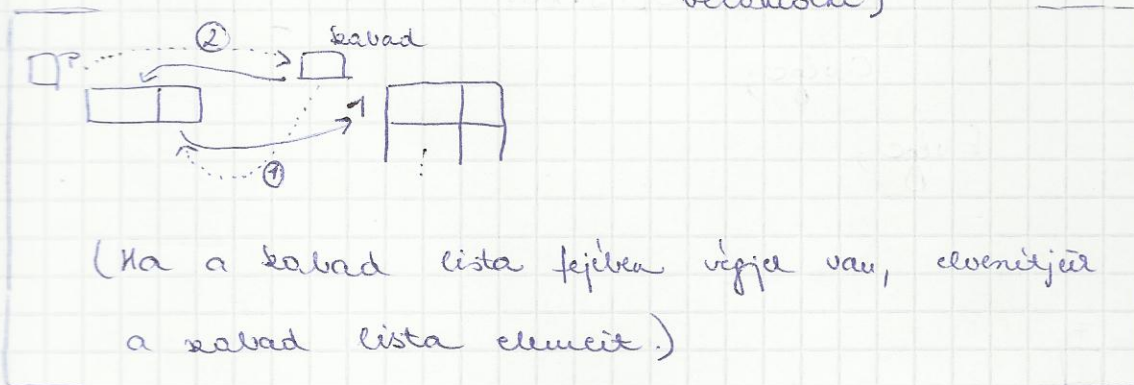 ②
szabad
P
1
①
(Ha a szabad lista fejében végjel van, elveszítjük
a szabad lista elemeit.)